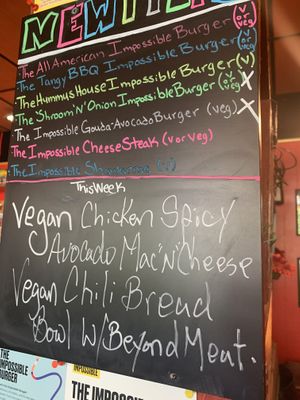 NEW ITEMS
-The All American Impossible Burger (V or veg)
-The Tangy BBQ Impossible Burger (V or veg)
-The Hummus House Impossible Burger (V)
-The 'Shroom 'N' Onion Impossible Burger (V or veg) X
-The Impossible Gouda-Avocado Burger (veg) X
-The Impossible Cheese Steak (V or veg)
-The Impossible (V)
This Week
Vegan Chicken Spicy
Avocado Mac 'N' Cheese
Vegan Chili Bread
Bowl W/ Beyond Meat.
THE
IMPOSSIBLE
BURGER
IMPOSSIBLE
THE IMPOSSIBLE